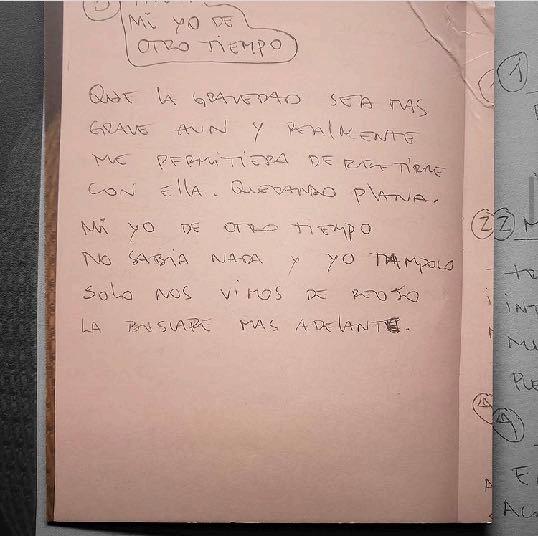 MI YO DE
OTRO TIEMPO
QUE LA GRAVEDAD SEA MAS
GRAVE AUN Y REALMENTE
ME PERMITIERA DERRETIRME
CON ELLA. QUEDANDO PLANA.
MI YO DE OTRO TIEMPO
NO SABIA NADA Y YO TAMPOCO
SOLO NOS VIMOS DE REOJO
LA BUSCARE MAS ADELANTE.
1
22 M